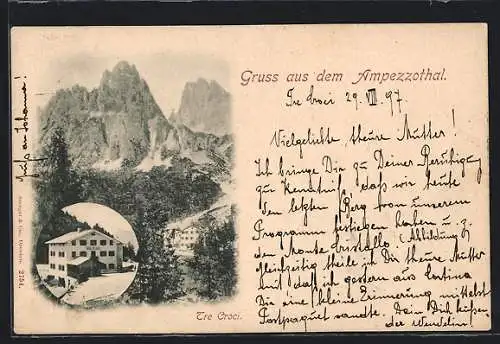 Gruss aus dem Ampezzothal.
Tre Croci 29. VIII 97.
Vielgeliebte, theure Mutter!
Ich bringe Dir zu Deiner Beruhigung
zur Kenntniß, daß wir heute
den letzten Berg von unserem
Programm gestrichen haben u. z.
den Monte Cristallo. (Abbildung)
Gleichzeitig theile ich Dir theure Mutter
mit, daß ich gestern aus Cortina
Dir eine kleine Erinnerung mittelst
Postpaquet sandte. Dein Dich küßen
der Wendelin.
Tre Croci.
2154.